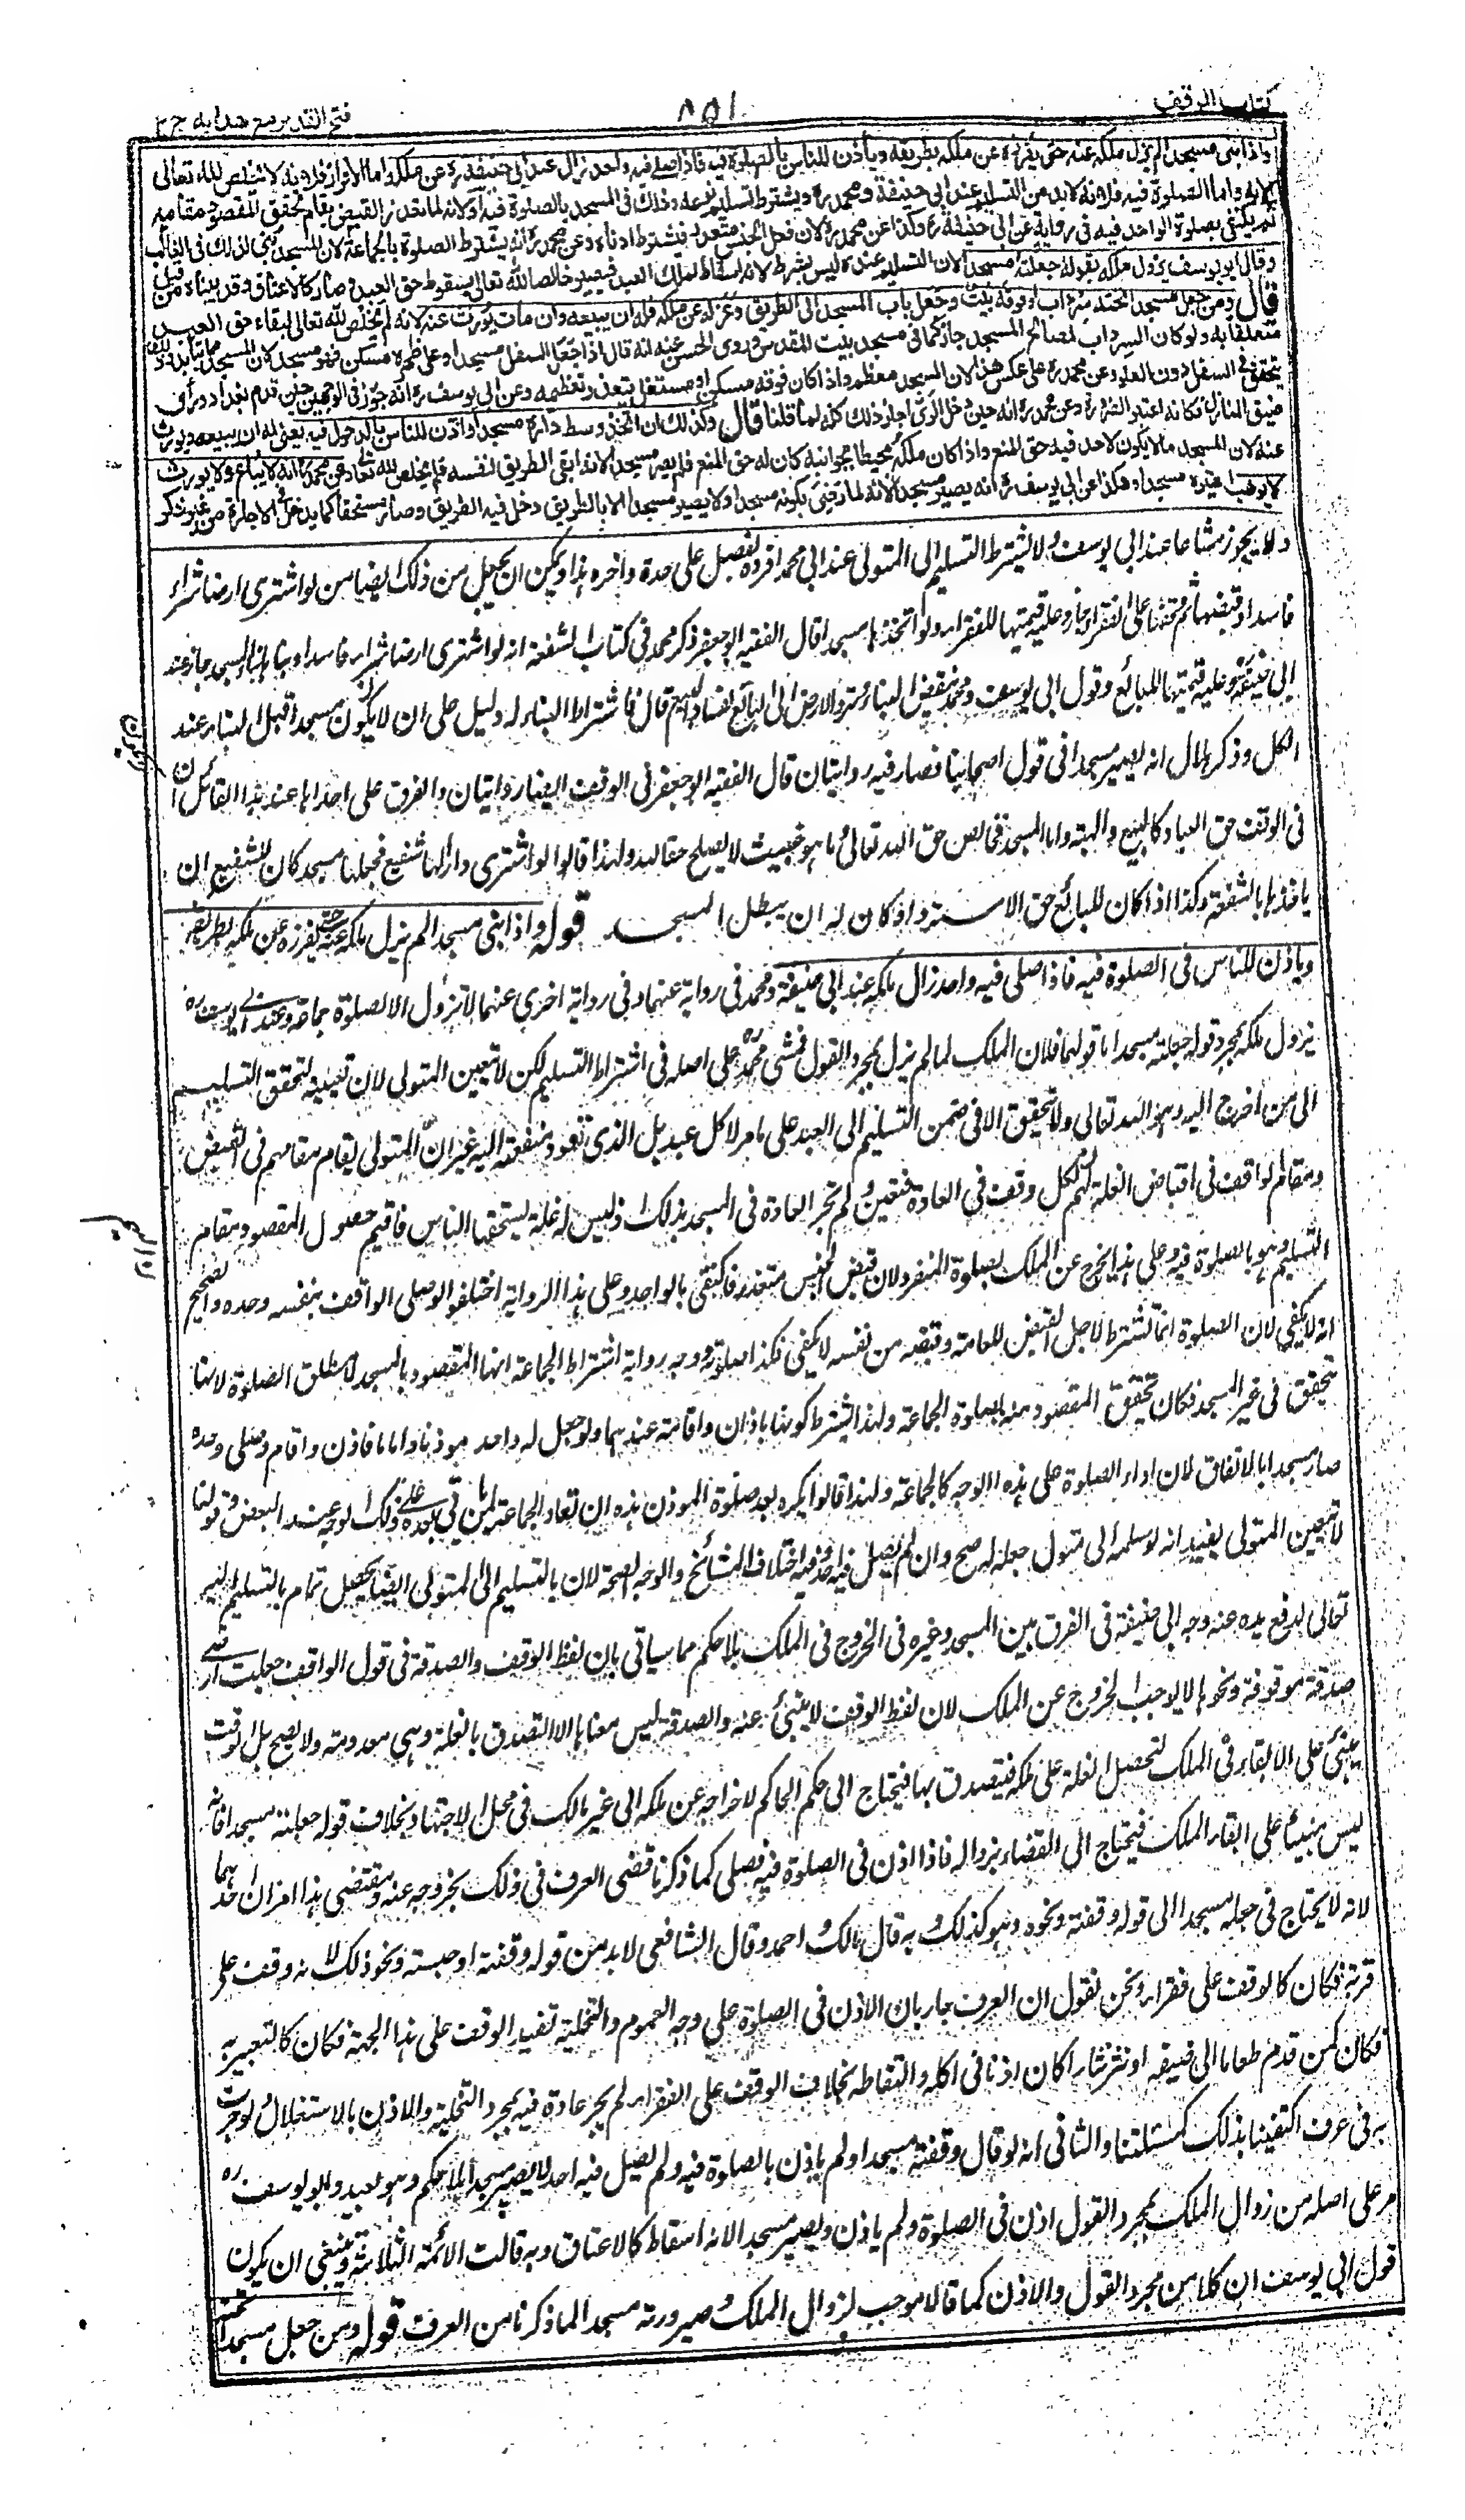 كتاب الوقف
٨٥١
فتح القدير مع هداية ج ٢
واذا بنى مسجدا لم يزل ملكه عنه حتى يفرزه عن ملكه بطريقه ويأذن للناس بالصلوة فيه فاذا صلى فيه واحد زال عند ابي حنيفة ره عن ملكه اما الافراز فلانه لا يخلص لله تعالى
الا به واما الصلوة فيه فلانه لا بد من التسليم عند ابي حنيفة ومحمد ره ويشترط تسليم نوعه وذلك في المسجد بالصلوة فيه او لانه لما تعذر القبض يقام تحقق المقصود مقامه
ثم يكتفى بصلوة الواحد فيه في رواية عن ابي حنيفة ره وكذا عن محمد ره لان فعل الجنس متعذر فيشترط ادناه وعن محمد ره انه يشترط الصلوة بالجماعة لان المسجد بني لذلك في الغالب
وقال ابو يوسف يزول ملكه بقوله جعلته مسجدا لان التسليم عنده ليس بشرط لانه اسقاط لملك العبد فيصير خالصا لله تعالى بسقوط حق العبد وصار كالاعتاق وقد بيناه من قبل
قال ومن جعل مسجدا تحته سرداب او فوقه بيت وجعل باب المسجد الى الطريق وعزله عن ملكه فله ان يبيعه وان مات يورث عنه لانه لم يخلص لله تعالى لبقاء حق العبد
متعلقا به ولو كان السرداب لمصالح المسجد جاز كما في مسجد بيت المقدس وروى الحسن عنه انه قال اذا جعل السفل مسجدا وعلى ظهره مسكن فهو مسجد لان المسجد مما يتأبد وذلك
يتحقق في السفل دون العلو وعن محمد ره على عكس هذا لان المسجد معظم واذا كان فوقه مسكن او مستغل يتعذر تعظيمه وعن ابي يوسف ره انه جوز في الوجهين حين قدم بغداد ورأى
ضيق المنازل فكانه اعتبر الضرورة وعن محمد ره انه حين دخل الري اجاز ذلك كله لما قلنا قال وكذلك ان اتخذ وسط داره مسجدا واذن للناس بالدخول فيه يعني له ان يبيعه ويورث
عنه لان المسجد ما لا يكون لاحد فيه حق المنع واذا كان ملكه محيطا بجوانبه كان له حق المنع فلم يصر مسجدا لانه ابقى الطريق لنفسه فلم يخلص لله تعالى وعن محمد ره انه لا يباع ولا يورث
لا يوهب اعتبره مسجدا وهكذا عن ابي يوسف ره انه يصير مسجدا لانه لما رضي بكونه مسجدا ولا يصير مسجدا الا بالطريق دخل فيه الطريق وصار مستحقا كما يدخل في الاجارة من غير ذكر
ولا يجوز مشاعا عند ابي يوسف ولا يشترط التسليم الى المتولى عند ابي محمد افرده بفصل على حدة واخره هذا ويمكن ان يجعل من ذلك ايضا من لو اشترى ارضا شراء
فاسدا وقبضها ثم وقفها على الفقراء جاز وعليه قيمتها للفقراء ولو اتخذها مسجدا قال الفقيه ابو جعفر ذكر محمد في كتاب الشفعة انه لو اشترى ارضا شراء فاسدا وبناها بناء المسجد جاز عند
ابي حنيفة ره وعليه قيمتها للبائع وقول ابي يوسف ومحمد ينقض البناء وترد الارض الى البائع لفساد البيع قال فاشتراط البناء له دليل على ان لا يكون مسجدا قبل البناء عند
الكل وذكر هلال انه يصير مسجدا في قول اصحابنا فصار فيه روايتان قال الفقيه ابو جعفر في الوقف ايضا روايتان والفرق على احداها عند هذا القائل ان
في الوقف حق العباد كالبيع والهبة واما المسجد فخالص حق الله تعالى وما هو خبيث لا يصلح حقا لله ولهذا قالوا لو اشترى دارا لها شفيع فجعلها مسجدا كان للشفيع ان
ياخذها بالشفعة وكذا اذا كان للبائع حق الاسترداد كان له ان يبطل المسجد قوله واذا بنى مسجدا لم يزل ملكه عنه حتى يفرزه عن ملكه بطريقه
وياذن للناس في الصلوة فيه فاذا صلى فيه واحد زال ملكه عند ابي حنيفة ومحمد في رواية عنهما وفي رواية اخرى عنهما لا تزول الا لصلوة جماعة وعند ابي يوسف ره
يزول ملكه بمجرد قوله جعلته مسجدا اما قولهما فلان الملك لما لم يزل بمجرد القول فمشى محمد ره على اصله في اشتراط التسليم لكن لا تعيين المتولى لان تعيينه لتحقق التسليم
الى من اخرج اليه وهو الله تعالى ولا يتحقق الا في ضمن التسليم الى العبد على ما مر لا كل عبد بل الذي تعود منفعته اليه غير ان المتولى يقام مقامهم في القبض
ومقام الواقف في اقباض الغلة لهم لكل وقف في العادة فتعين ولم تجر العادة في المسجد بذلك اذ ليس له غلة يستحقها الناس فاقيم حصول المقصود مقام
التسليم وهو بالصلوة فيه وعلى هذا يخرج عن الملك بصلوة المنفرد لان قبض الجنس متعذر فاكتفى بالواحد وعلى هذا الرواية اختلفوا لو صلى الواقف بنفسه وحده والصحيح
انه لا يكفي لان الصلوة انما تشترط لاجل القبض للعامة وقبضه من نفسه لا يكفي فكذا صلوته ووجه رواية اشتراط الجماعة انها المقصود بالمسجد لا مطلق الصلوة لانها
تحقق في غير المسجد فكان تحقق المقصود منه بصلوة الجماعة ولهذا يشترط كونها باذان واقامة عندهما ولو جعل له واحد موذنا واماما فاذن واقام وصلى وحده
صار مسجدا بالاتفاق لان اداء الصلوة على هذه الوجه كالجماعة ولهذا قالوا يكره بعد صلوة الموذن هذه ان تعاد الجماعة لمن ياتي بعده على ذلك الوجه عند البعض وقولنا
لا تعيين المتولى يفيد انه لو سلمه الى متول جعله له صح وان لم يصل فيه احد وفيه اختلاف المشائخ والوجه الصحة لان بالتسليم الى المتولى ايضا يحصل تمام بالتسليم اليه
تعالى لرفع يده عنه وجه ابي حنيفة في الفرق بين المسجد وغيره في الخروج في الملك بلا حكم مما سياتي بان لفظ الوقف والصدقة في قول الواقف جعلت ارضي
صدقة موقوفة ونحوها لا يوجب الخروج عن الملك لان لفظ الوقف لا ينبئ عنه والصدقة ليس معناها الا التصدق بالغلة وهي معدومة ولا يصح بل الوقف
ينبئ على الابقاء في الملك لتحصل الغلة على ملكه فيتصدق بها فيحتاج الى حكم الحاكم لاخراجه عن ملكه الى غير مالك في محل الاجتهاد بخلاف قوله جعلته مسجدا فانه
ليس منبئا على ابقاء الملك فيحتاج الى القضاء بزواله فاذا اذن في الصلوة فيه فصلى كما ذكرنا قضى العرف في ذلك بخروجه عنه ومقتضى هذا امران احدهما
لانه لا يحتاج في جعله مسجدا الى قوله وقفته ونحوه وهو كذلك وبه قال مالك واحمد وقال الشافعي لا بد من قوله وقفته او حبسته ونحو ذلك لانه وقف على
قربة فكان كالوقف على فقراء ونحن نقول ان العرف جار بان الاذن في الصلوة على وجه العموم والتخلية تفيد الوقف على هذا الجهة فكان كالتعبير به
فكان كمن قدم طعاما الى ضيفه او نثر نثارا كان اذنا في اكله والتقاطه بخلاف الوقف على الفقراء لم يجر عادة فيه بمجرد التخلية والاذن بالاستغلال ولو جرت
به في عرف اكتفينا بذلك كمسئلتنا والثاني انه لو قال وقفته مسجدا ولم ياذن بالصلوة فيه ولم يصل فيه احد لا يصير مسجدا بلا حكم وهو بعيد وابو يوسف ره
مر على اصله من زوال الملك بمجرد القول اذن في الصلوة ولم ياذن ويصير مسجدا لانه اسقاط كالاعتاق وبه قالت الائمة الثلاثة وينبغي ان يكون
قول ابي يوسف ان كلا من مجرد القول والاذن كما قالا موجب لزوال الملك وصيرورته مسجدا لما ذكرنا من العرف قوله ومن جعل مسجدا تحته